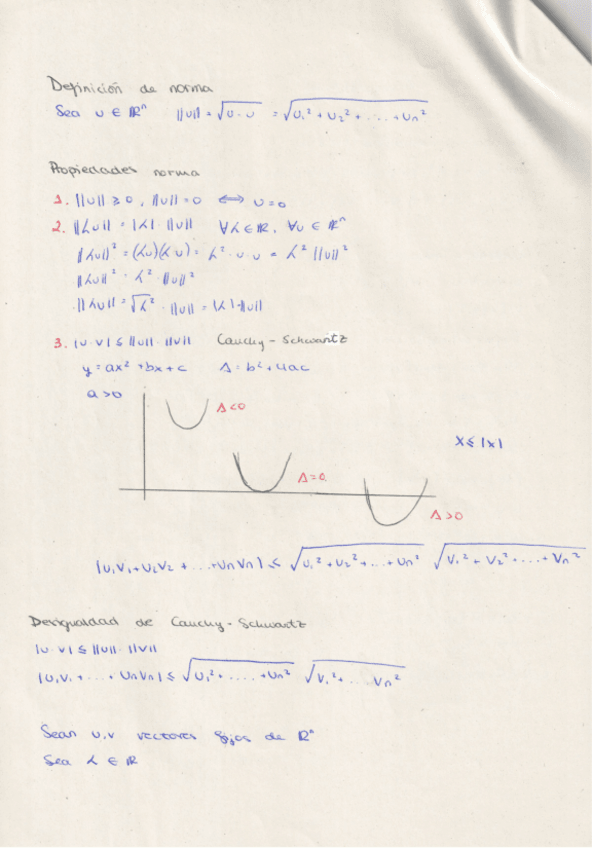 Definición de norma
Sea u ∈ ℝⁿ ||u|| = √(u · u) = √(u₁² + u₂² + .... + un²)
Propiedades norma
1. ||u|| ≥ 0, ||u|| = 0 ⟺ u = 0
2. ||λu|| = |λ| · ||u|| ∀λ ∈ ℝ, ∀u ∈ ℝⁿ
||λu||² = (λu)(λu) = λ² · u · u = λ² ||u||²
||λu||² = λ² · ||u||²
||λu|| = √λ² · ||u|| = |λ| · ||u||
3. |u · v| ≤ ||u|| · ||v|| Cauchy - Schwartz
y = ax² + bx + c Δ = b² + 4ac
a > 0
Δ < 0
x ≤ |x|
Δ = 0
Δ > 0
|u₁v₁ + u₂v₂ + ... + un vn| ≤ √(u₁² + u₂² + ... + un²) √(v₁² + v₂² + ... + vn²)
Desigualdad de Cauchy - Schwartz
|u · v| ≤ ||u|| · ||v||
|u₁v₁ + .... + un vn| ≤ √(u₁² + ..... + un²) √(v₁² + .... vn²)
Sean u,v vectores fijos de ℝⁿ
Sea λ ∈ ℝ